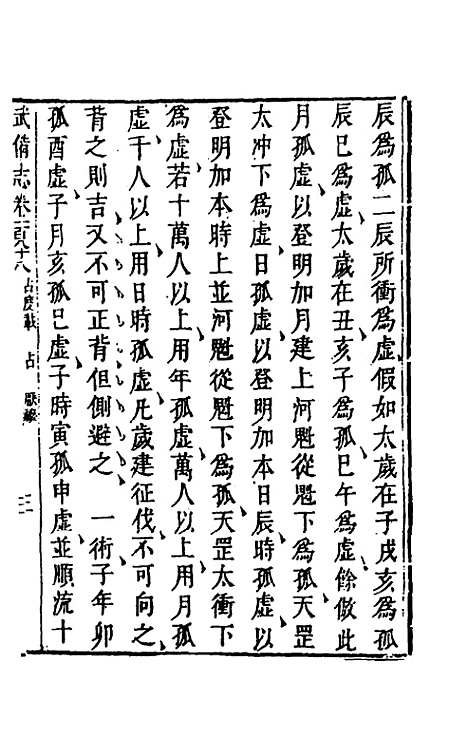 辰爲孤二辰所衝爲虛假如太歲在子戌亥爲孤
辰巳爲虛太歲在丑亥子爲孤巳午爲虛餘倣此
月孤虛以登明加月建上河魁從魁下爲孤天罡
太冲下爲虛日孤虛以登明加本日辰時孤虛以
登明加本時上並河魁從魁下爲孤天罡太衝下
爲虛若十萬人以上用年孤虛萬人以上用月孤
虛千人以上用日時孤虛凡歲建征伐不可向之
背之則吉又不可正背但側避之 一術子年卯
孤酉虛子月亥孤巳虛子時寅孤申虛並順流十
武備志卷一百八十六 占度載 占 厭禳 三二